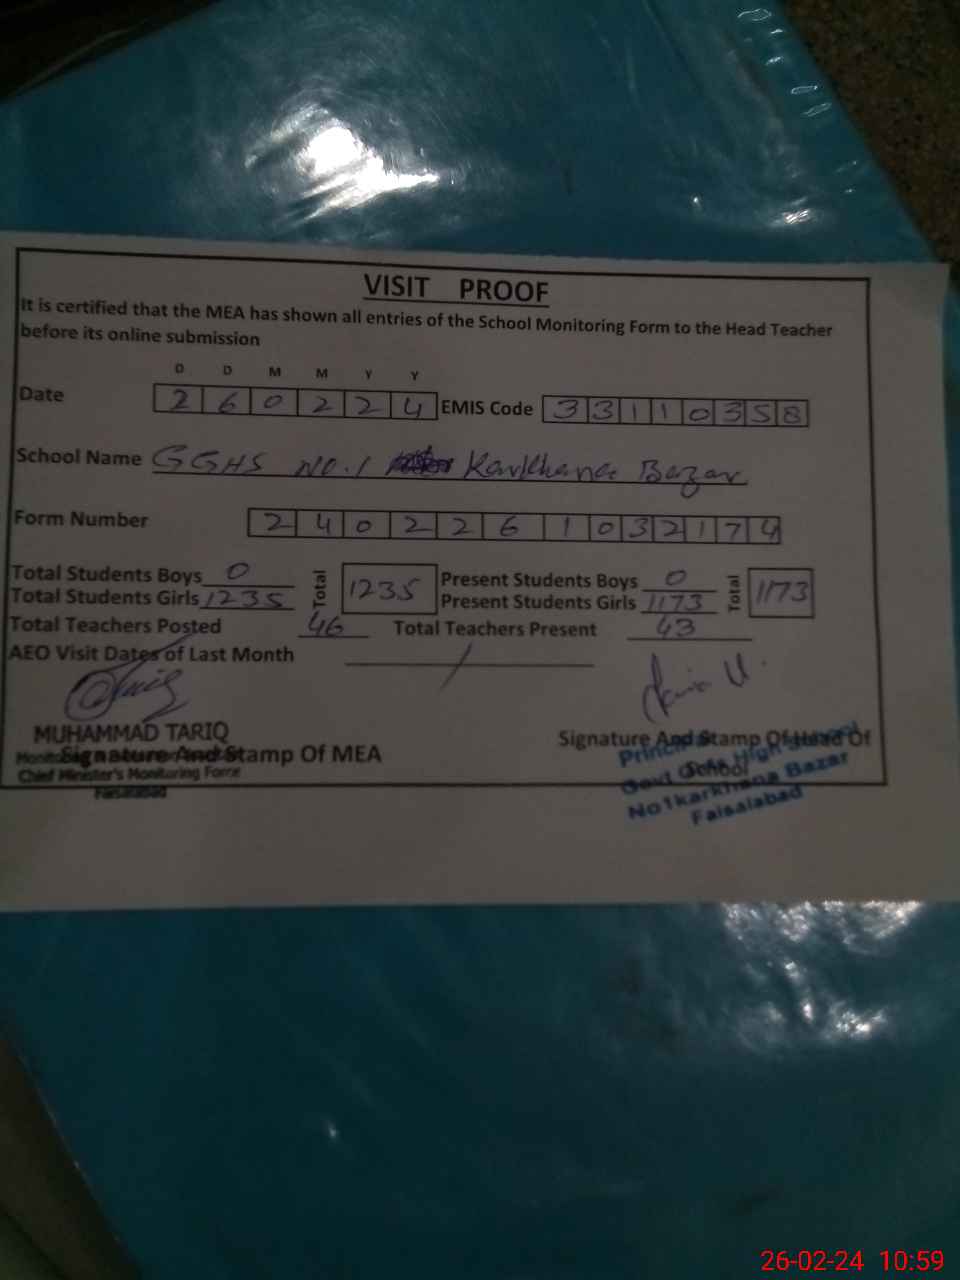 VISIT PROOF
It is certified that the MEA has shown all entries of the School Monitoring Form to the Head Teacher
before its online submission
D D M M Y Y
Date 2 6 0 2 2 4 EMIS Code 3 3 1 1 0 3 5 8
School Name GGHS No.1 Karkhana Bazar
Form Number 2 4 0 2 2 6 1 0 3 2 1 7 4
Total Students Boys 0 Total 1235 Present Students Boys 0 Total 1173
Total Students Girls 1235 Present Students Girls 1173
Total Teachers Posted 46 Total Teachers Present 43
AEO Visit Dates of Last Month /
MUHAMMAD TARIQ
Signature And Stamp Of MEA
Chief Minister's Monitoring Force
Faisalabad
Signature And Stamp Of Head Of
School
Govt Girls High School
No1karkhana Bazar
Faisalabad
26-02-24 10:59